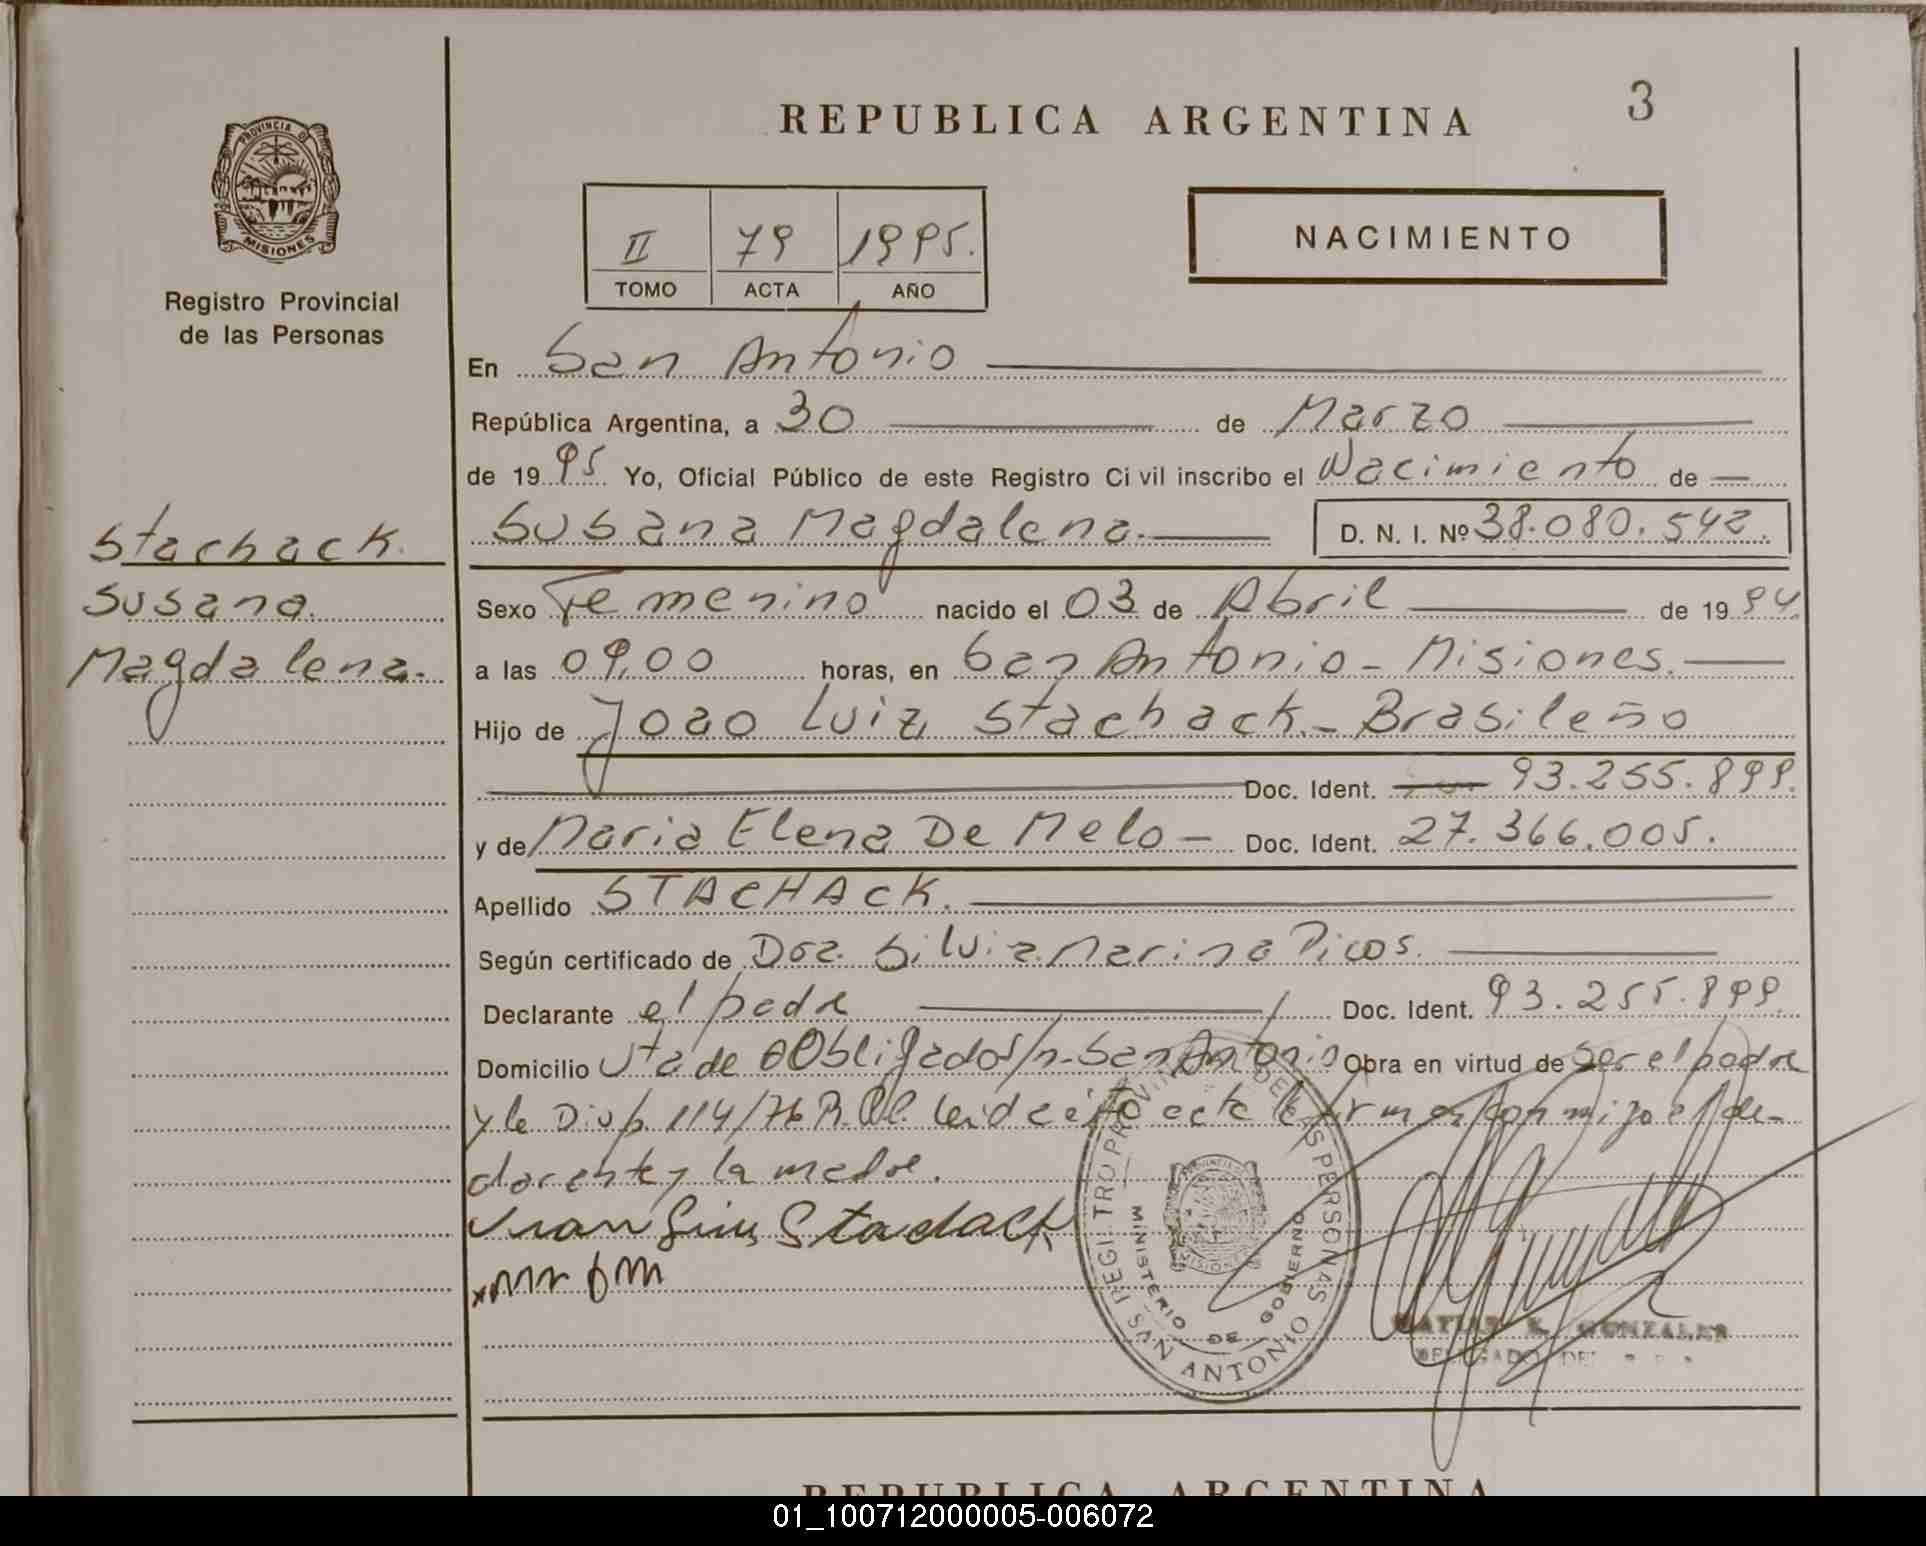 3
REPUBLICA ARGENTINA
PROVINCIA D
MISIONES
Registro Provincial
de las Personas
II 79 1995.
TOMO ACTA AÑO
NACIMIENTO
En San Antonio
República Argentina, a 30 de Marzo
de 1995 Yo, Oficial Público de este Registro Civil inscribo el Nacimiento de
Susana Magdalena. D. N. I. Nº 38.080.542.
Stachack.
Susana.
Magdalena.
Sexo Femenino nacido el 03 de Abril de 1994.
a las 09,00 horas, en San Antonio - Misiones.
Hijo de Joao Luiz Stachack. - Brasileño
Doc. Ident. 93.255.899.
y de Maria Elena De Melo - Doc. Ident. 27.366.005.
Apellido STACHACK.
Según certificado de Dra. Silvia Marina Picos.
Declarante el padre Doc. Ident. 93.255.899
Domicilio Obligado s/n. San Antonio Obra en virtud de ser el padre
y la Disp. 114/76 esta acta la firman conmigo el de-
clarante y la madre.
Stachack
REGISTRO PROVINCIAL DE LAS PERSONAS
MINISTERIO DE GOBIERNO
SAN ANTONIO
GONZALEZ
DELEGADO DEL
REPUBLICA ARGENTINA
01_100712000005-006072